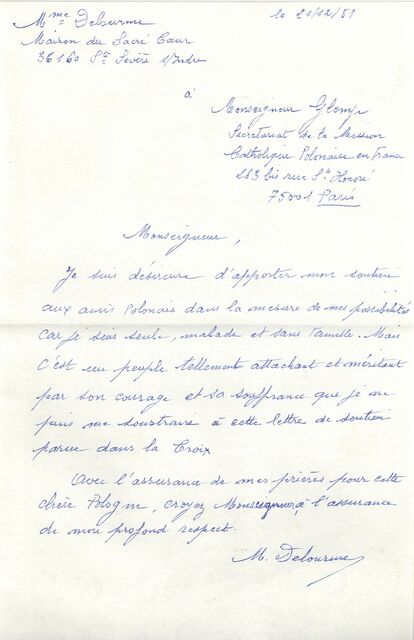 Mme
Maison du Sacré Cœur
36160 Ste Sévère s/Indre
le 21/12/81
à
Monseigneur Glemp
Secretariat de la Mission
Catholique Polonaise en France
263 bis rue St Honoré
75001 Paris
Monseigneur,
Je suis désireuse d'apporter mon soutien
aux amis Polonais dans la mesure de mes possibilités
car je suis seule, malade et sans famille. Mais
c'est un peuple tellement attachant et méritant
par son courage et sa souffrance que je ne
puis me soustraire à cette lettre de soutien
parue dans la Croix
Avec l'assurance de mes prières pour cette
chère Pologne, croyez Monseigneur, à l'assurance
de mon profond respect.
M.